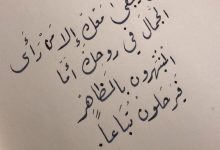 معك إلا من رأى
الجمال في روحك أما
المنبهرون بالمظاهر
فيرحلون تباعاً.